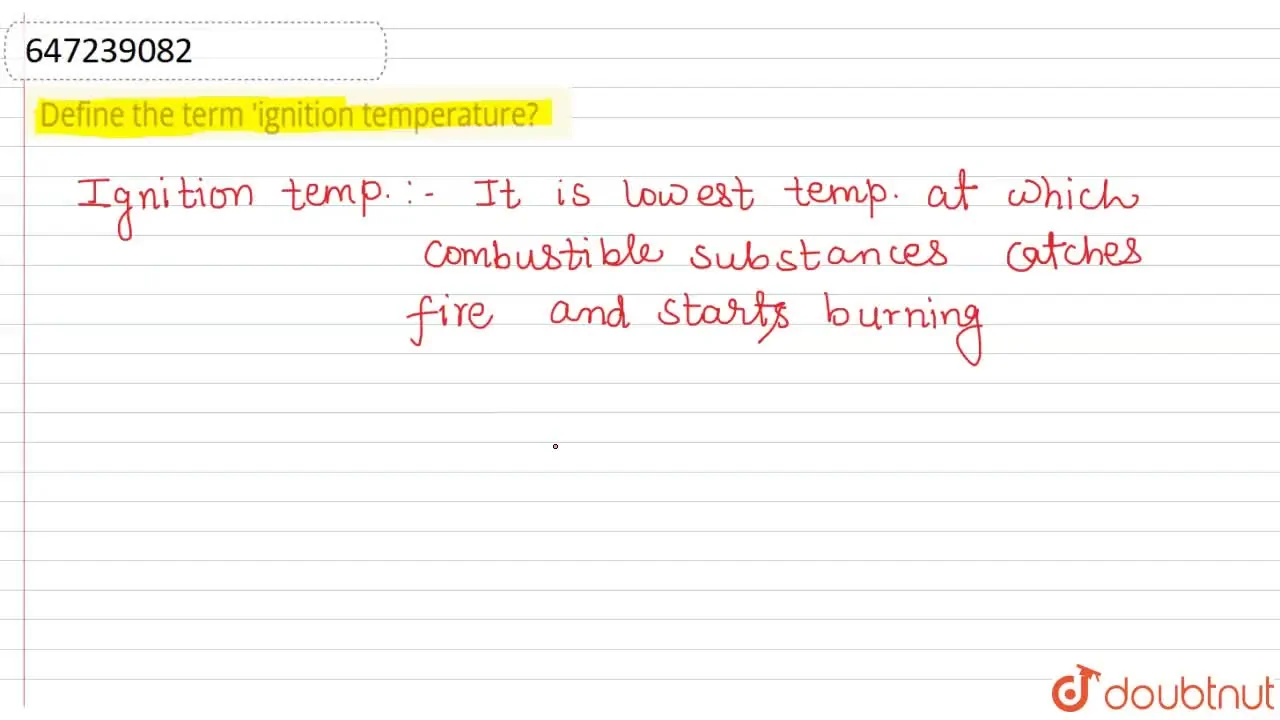 647239082
Define the term 'ignition temperature?
Ignition temp. :- It is lowest temp. at which
combustible substances catches
fire and starts burning
doubtnut